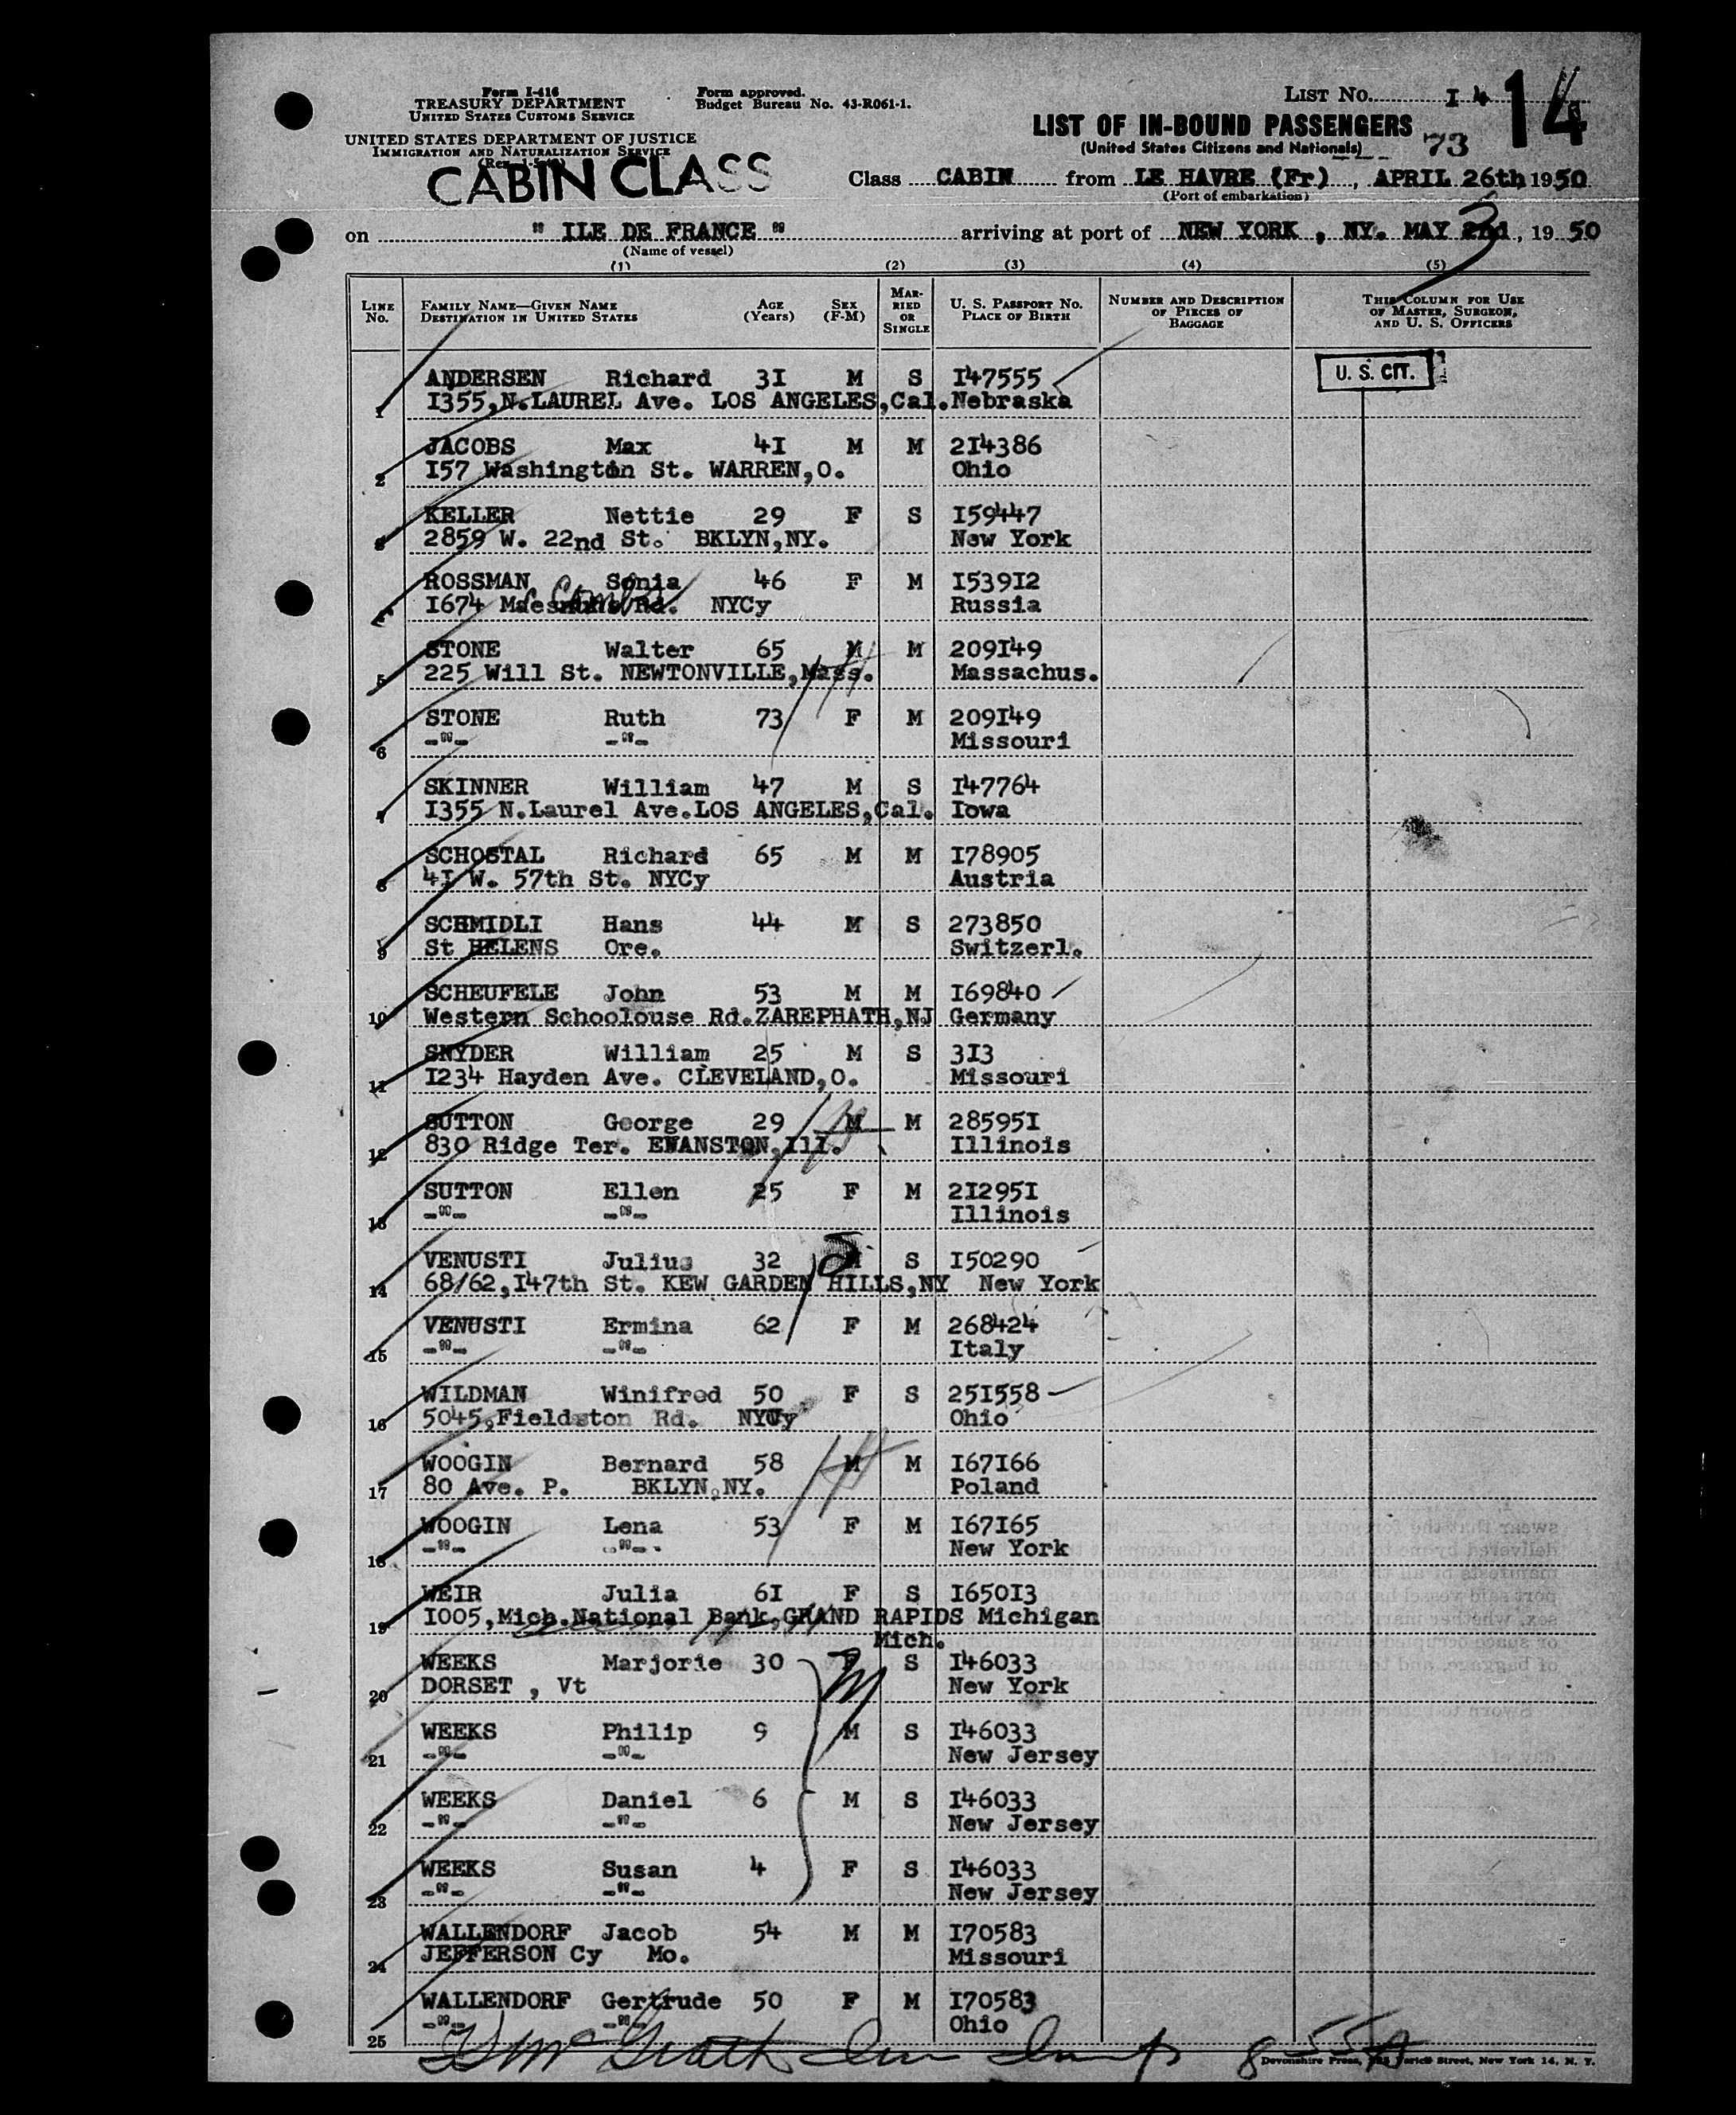 Form I-416
TREASURY DEPARTMENT
UNITED STATES CUSTOMS SERVICE
UNITED STATES DEPARTMENT OF JUSTICE
IMMIGRATION AND NATURALIZATION SERVICE
Form approved.
Budget Bureau No. 43-R061-1.
LIST No. I4 14
LIST OF IN-BOUND PASSENGERS
(United States Citizens and Nationals) 73
CABIN CLASS
Class CABIN from LE HAVRE (Fr), APRIL 26th 1950
(Port of embarkation)
on " ILE DE FRANCE " arriving at port of NEW YORK , NY. MAY 2nd 3, 1950
(Name of vessel)
(1) (2) (3) (4) (5)
LINE No. FAMILY NAME—GIVEN NAME DESTINATION IN UNITED STATES AGE (Years) SEX (F-M) MARRIED OR SINGLE U. S. PASSPORT NO. PLACE OF BIRTH NUMBER AND DESCRIPTION OF PIECES OF BAGGAGE THIS COLUMN FOR USE OF MASTER, SURGEON, AND U. S. OFFICERS
U. S. CIT.
ANDERSEN Richard 3I M S I47555
1 I355,N.LAUREL Ave. LOS ANGELES,Cal. Nebraska
JACOBS Max 4I M M 2I4386
2 I57 Washington St. WARREN,O. Ohio
KELLER Nettie 29 F S I59447
3 2859 W. 22nd St. BKLYN,NY. New York
ROSSMAN Sonia 46 F M I539I2
4 I674 Rd. NYCy Russia
STONE Walter 65 M M 209I49
5 225 Will St. NEWTONVILLE,Mass. Massachus.
STONE Ruth 73 F M 209I49
6 -"- -"- Missouri
SKINNER William 47 M S I47764
7 I355 N.Laurel Ave.LOS ANGELES,Cal. Iowa
SCHOSTAL Richard 65 M M I78905
8 4I W. 57th St. NYCy Austria
SCHMIDLI Hans 44 M S 273850
9 St HELENS Ore. Switzerl.
SCHEUFELE John 53 M M I69840
10 Western Schoolouse Rd.ZAREPHATH,NJ Germany
SNYDER William 25 M S 3I3
11 I234 Hayden Ave. CLEVELAND,O. Missouri
SUTTON George 29 M M 28595I
12 830 Ridge Ter. EWANSTON,Ill. Illinois
SUTTON Ellen 25 F M 2I295I
13 -"- -"- Illinois
VENUSTI Julius 32 S I50290
14 68/62,I47th St. KEW GARDEN HILLS,NY New York
VENUSTI Ermina 62 F M 268424
15 -"- -"- Italy
WILDMAN Winifred 50 F S 25I558
16 5045,Fieldston Rd. NYCy Ohio
WOOGIN Bernard 58 M M I67I66
17 80 Ave. P. BKLYN,NY. Poland
WOOGIN Lena 53 F M I67I65
18 -"- -"- New York
WEIR Julia 6I F S I650I3
19 I005,Mich.National Bank,GRAND RAPIDS Michigan
Mich.
WEEKS Marjorie 30 S I46033
20 DORSET , Vt New York
WEEKS Philip 9 M S I46033
21 -"- -"- New Jersey
WEEKS Daniel 6 M S I46033
22 -"- -"- New Jersey
WEEKS Susan 4 F S I46033
23 -"- -"- New Jersey
WALLENDORF Jacob 54 M M I70583
24 JEFFERSON Cy Mo. Missouri
WALLENDORF Gertrude 50 F M I70583
25 -"- -"- Ohio
Devonshire Press, Varick Street, New York 14, N. Y.